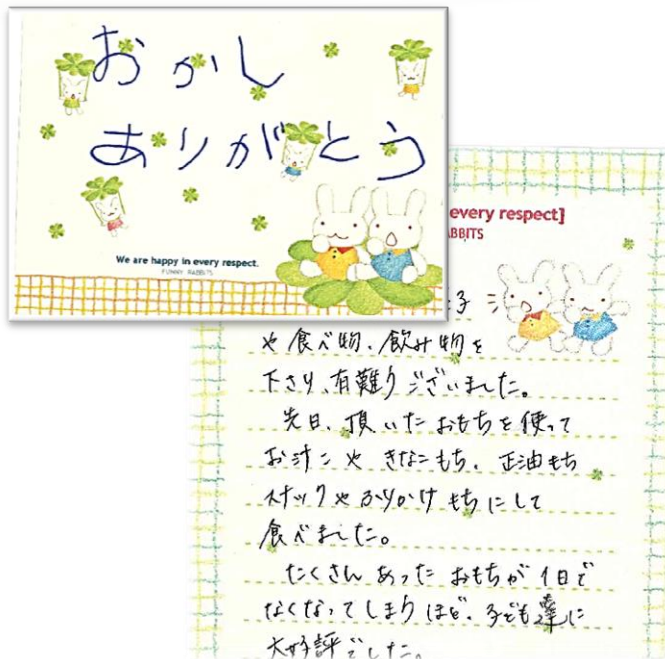 おかし
ありがとう
We are happy in every respect.
FUNNY RABBITS
every respect]
ABBITS
子
や食べ物、飲み物を
下さり、有難うございました。
先日、頂いたおもちを使って
お汁こやきなこもち、正油もち
スナックやふりかけもちにして
食べました。
たくさんあったおもちが1日で
なくなってしまうほど、子ども達に
大好評でした。